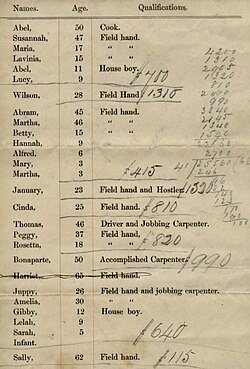 Names. Age. Qualifications.
Abel, 50 Cook.
Susannah, 47 Field hand.
Maria, 17 " "
Lavinia, 15 " "
Abel, 11 House boy.
Lucy, 9 $700
Wilson, 28 Field Hand $1310
Abram, 45 Field hand.
Martha, 46 " "
Betty, 15 " "
Hannah, 9
Alfred, 6
Mary, 3
Martha, 3 $415
January, 23 Field hand and Hostler. 1320
Cinda, 25 Field hand. $810
Thomas, 46 Driver and Jobbing Carpenter.
Peggy, 37 Field hand,
Rosetta, 18 " " $820
Bonaparte, 50 Accomplished Carpenter. $990
Harriet, 65 Field hand.
Juppy, 26 Field hand and jobbing carpenter.
Amelia, 30 " "
Gibby, 12 House boy.
Lelah, 9
Sarah, 5
Infant. $640
Sally, 62 Field hand. $115
4200
1310